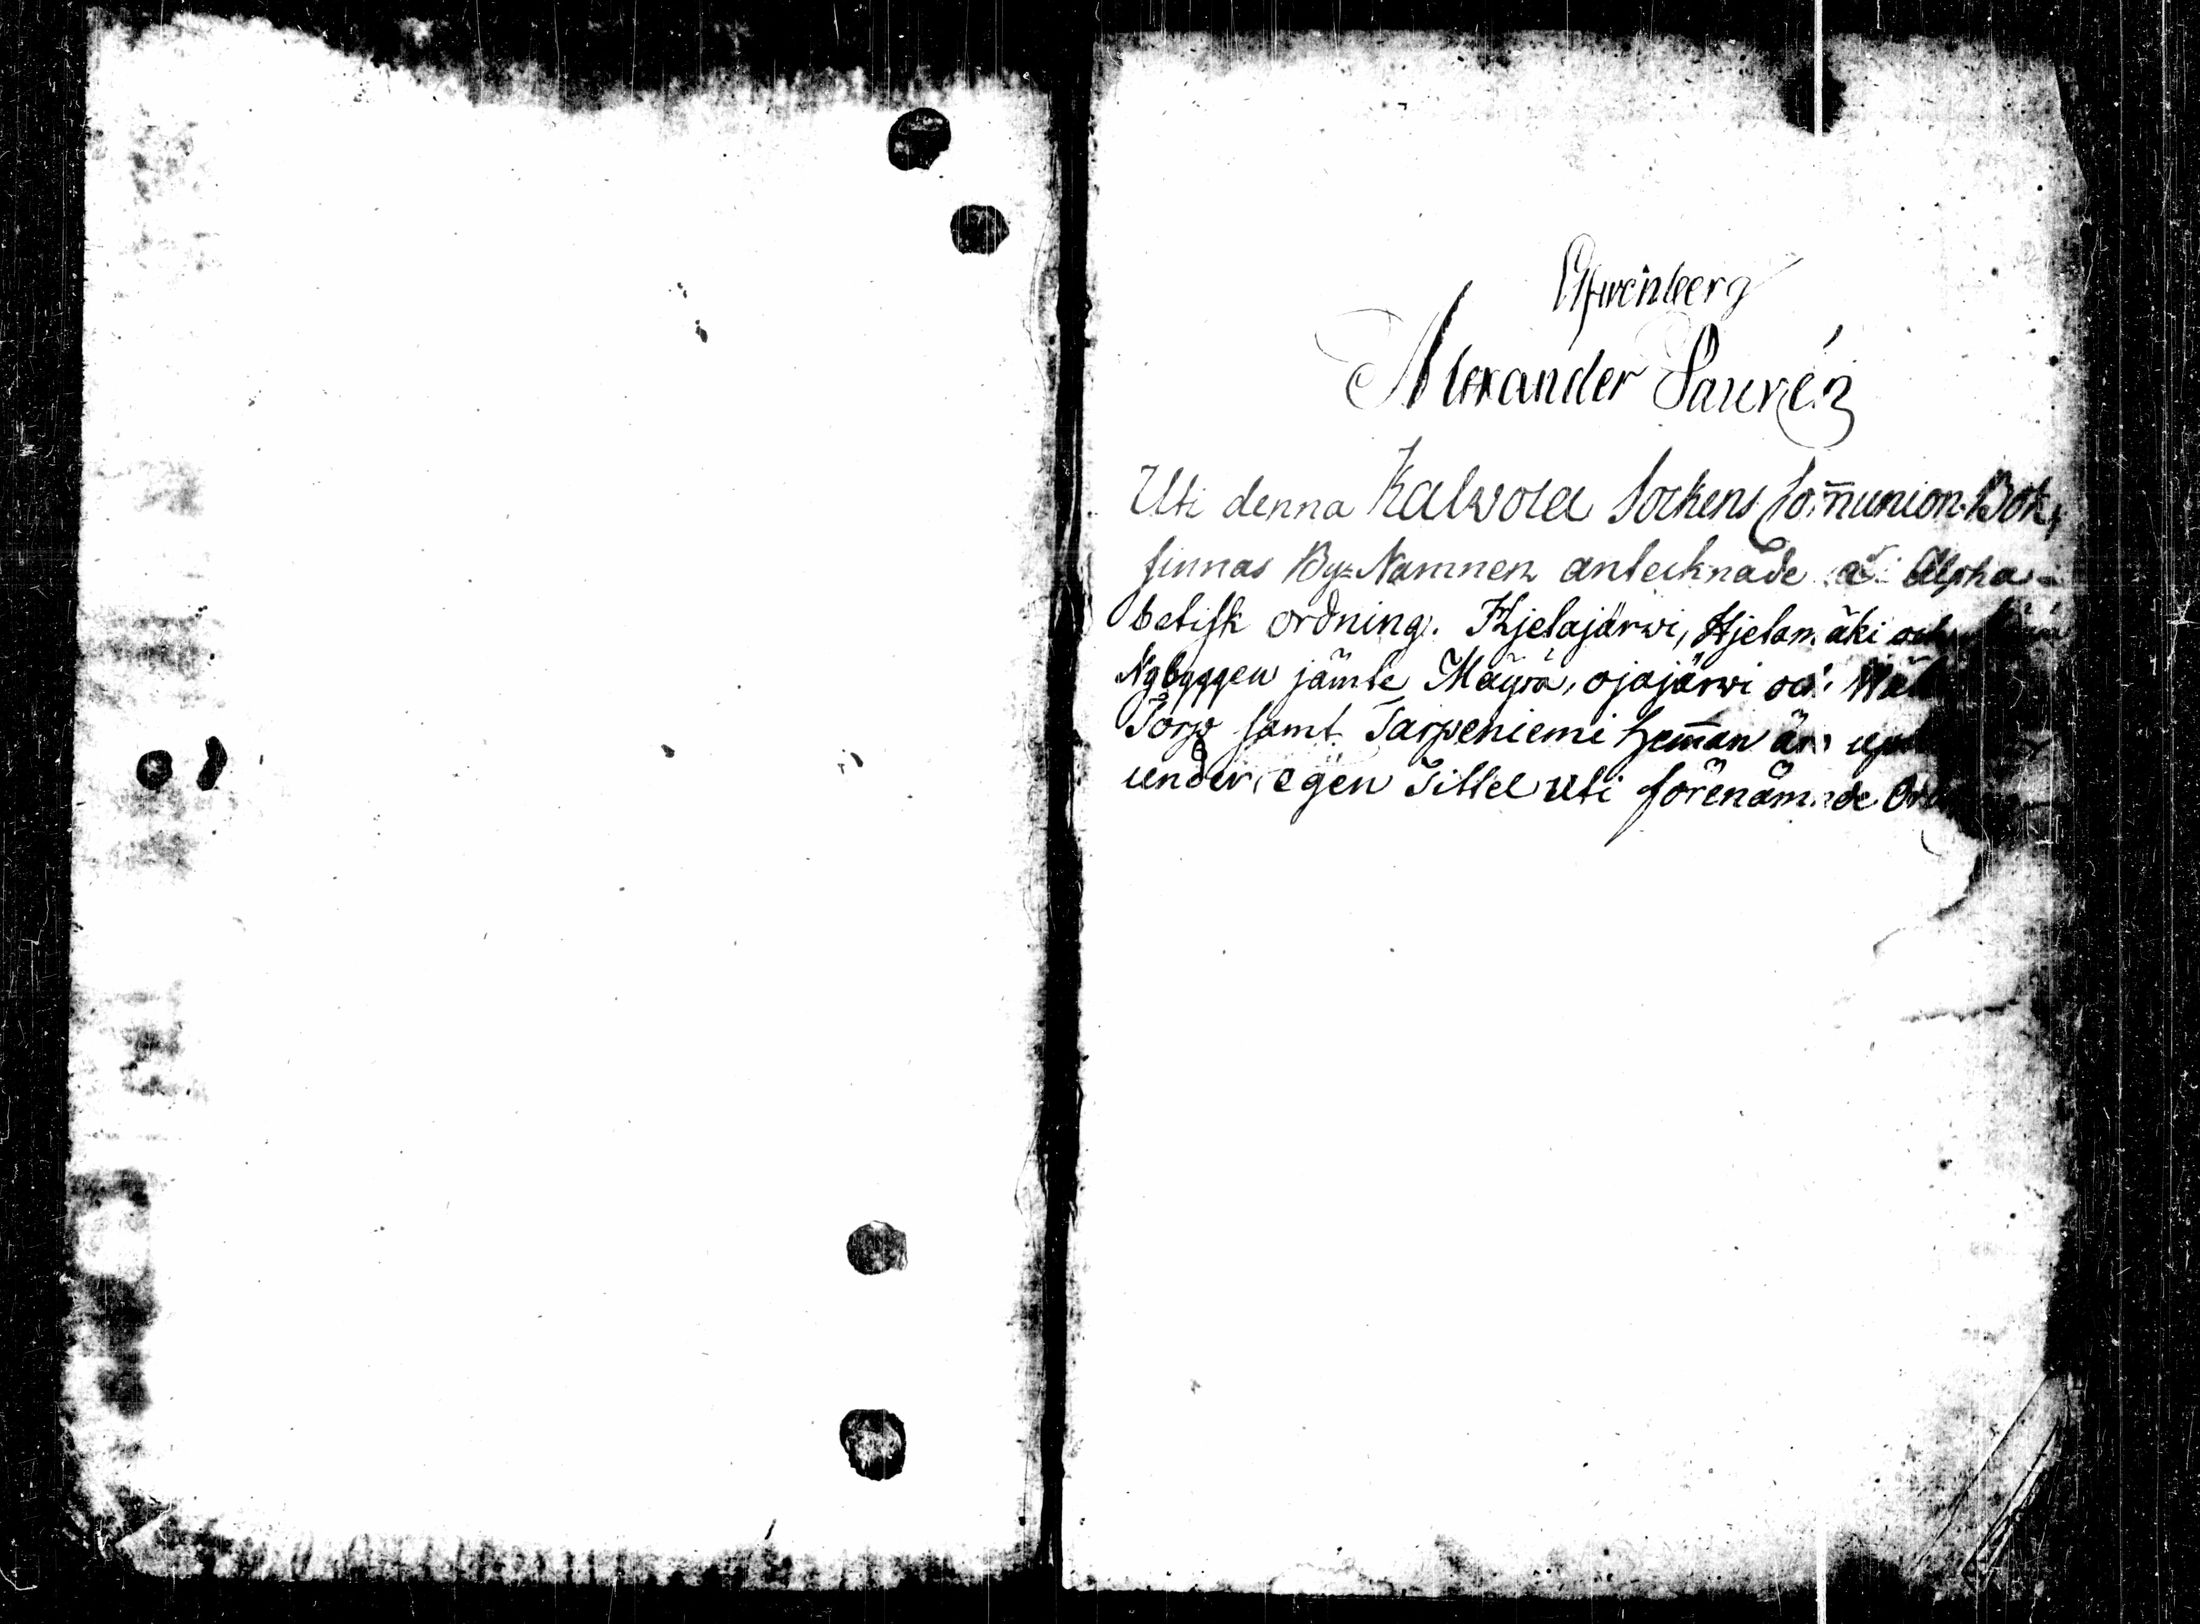 Alexander Saurén
Uti denna Kalwola Sockens Com̅union-Bok,
finnas By=Namnen antecknade Alpha=
betisk ordning. Hjetajärwi, Hjetamäki och
Nybyggen jämte Mäyrä, ojajärwi och
Torp samt Tarpeniemi Hem̅an äro
under egen Tittel uti förenämnde